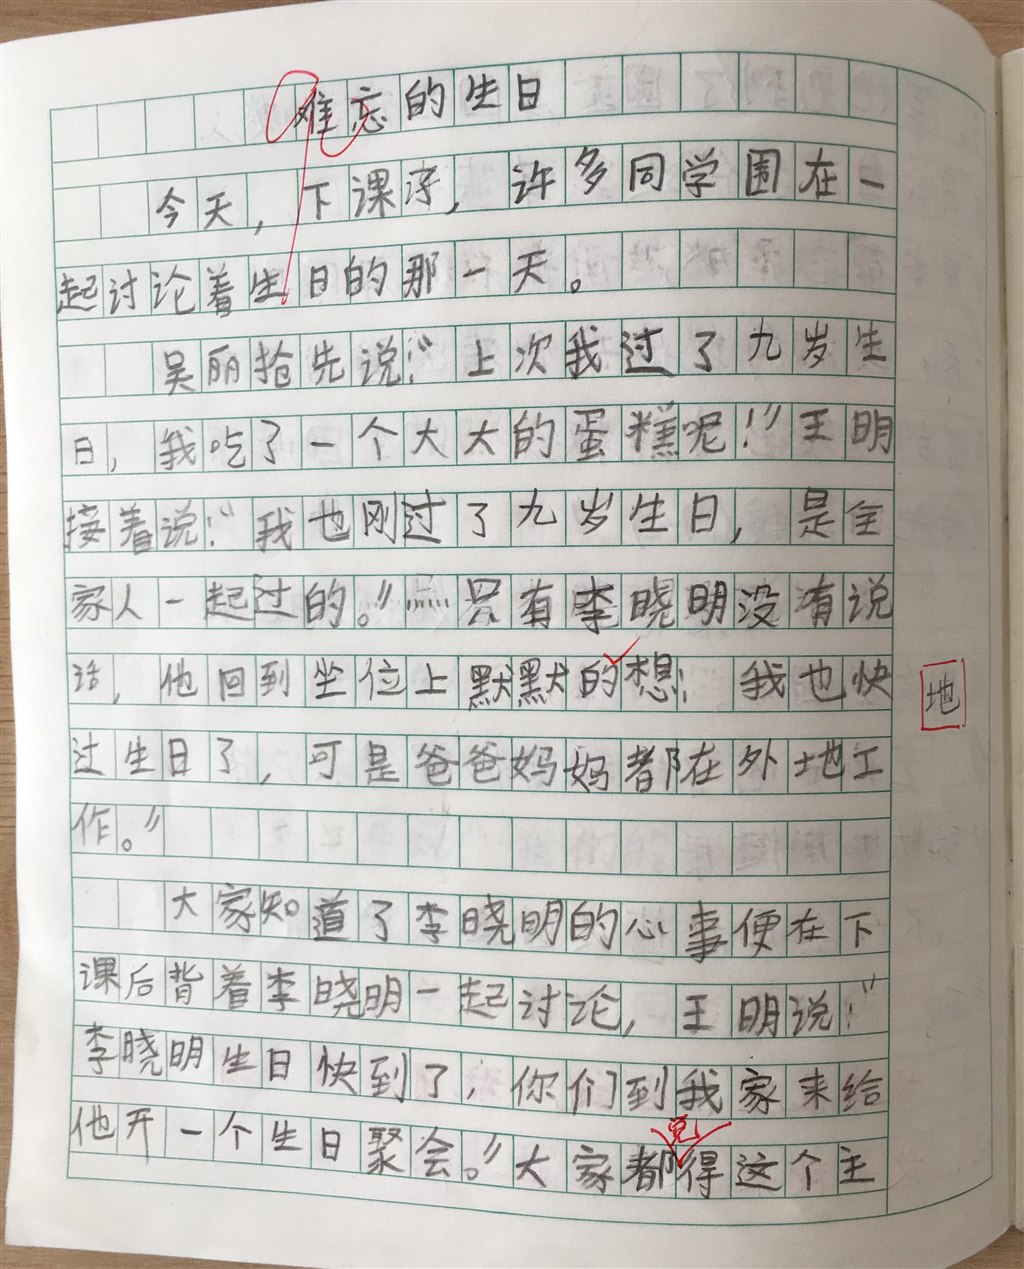 难忘的生日
今天，下课后，许多同学围在一
起讨论着生日的那一天。
吴丽抢先说：“上次我过了九岁生
日，我吃了一个大大的蛋糕呢！”王明
接着说：“我也刚过了九岁生日，是全
家人一起过的。”……只有李晓明没有说
话，他回到坐位上默默的想：我也快
地
过生日了，可是爸爸妈妈都在外地工
作。”
大家知道了李晓明的心事便在下
课后背着李晓明一起讨论，王明说：“
李晓明生日快到了，你们到我家来给
他开一个生日聚会。”大家都得这个主
觉